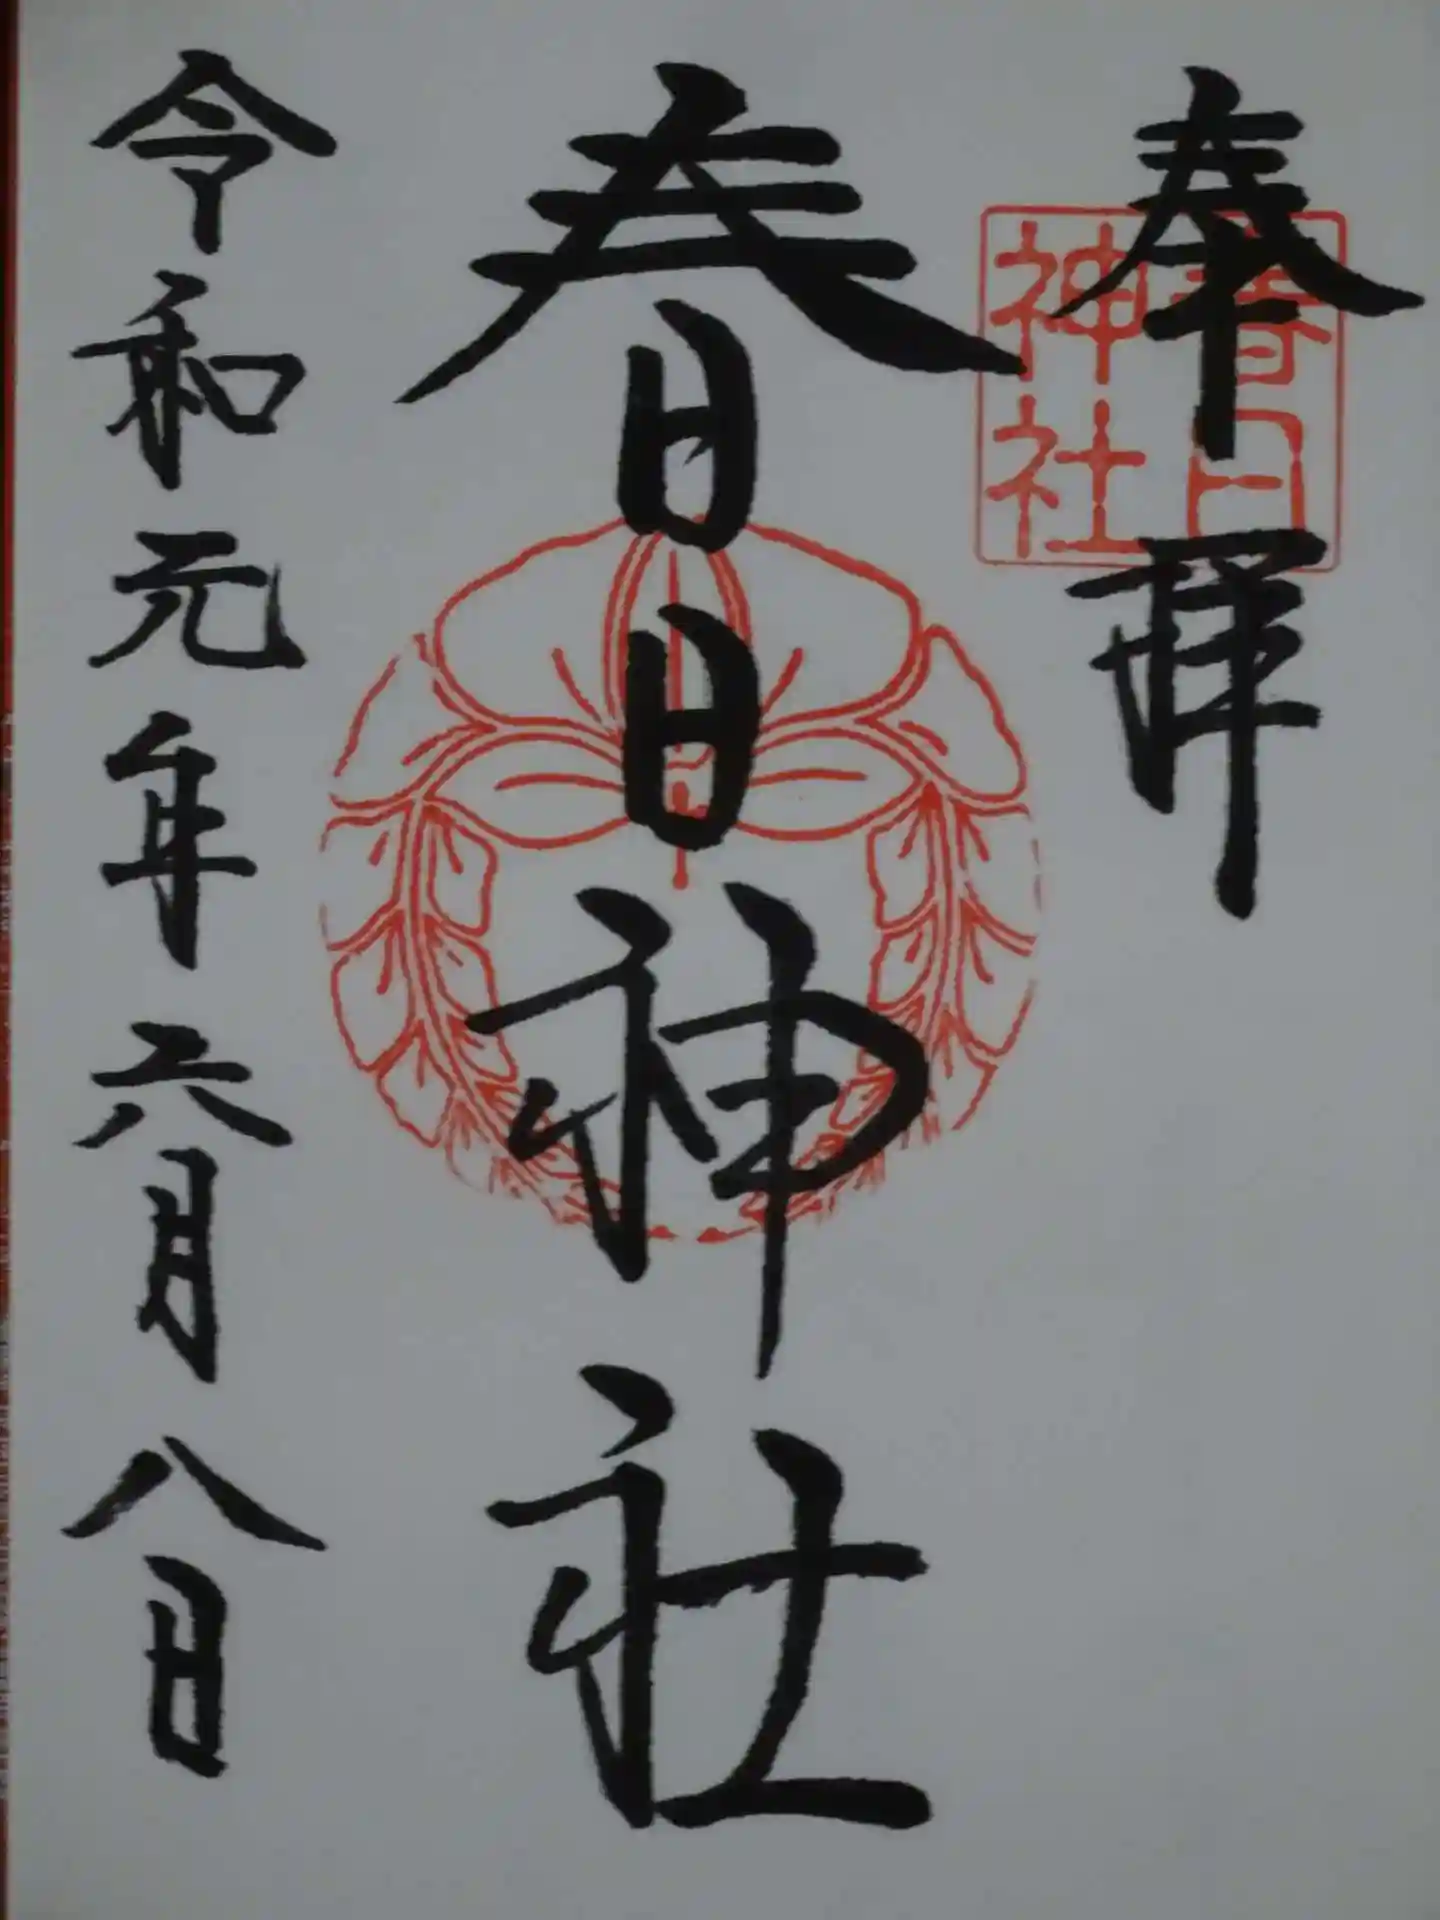 奉拝
春日
神社
春日神社
令和元年六月八日